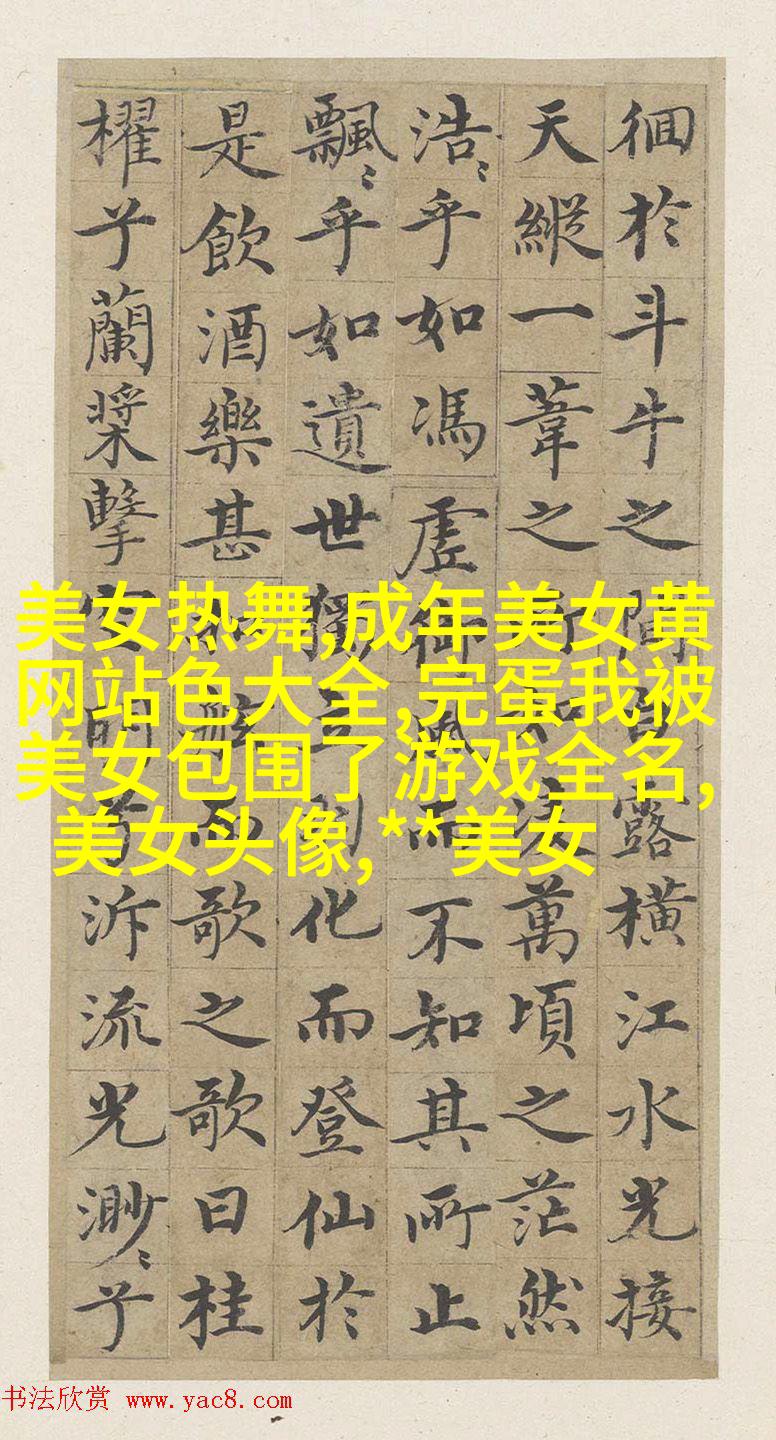 徊於斗牛之間白露橫江水光接
天縱一葦之所如淩萬頃之茫然
浩〻乎如馮虛御風而不知其所止
飄〻乎如遺世獨立羽化而登仙於
是飲酒樂甚扣舷而歌之歌曰桂
櫂兮蘭槳擊空明兮泝流光渺〻兮
美女热舞,成年美女黄
网站色大全,完蛋我被
美女包围了游戏全名,
美女头像,**美女
书法欣赏 www.yac8.com